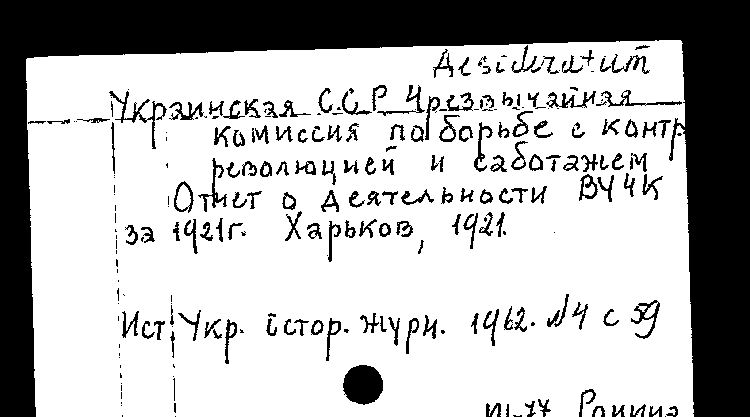 Desideratum
Украинская С.С.Р Чрезвычайная
комиссия по борьбе с контр
революцией и саботажем
Отчет о деятельности ВУЧК
за 1921г. Харьков, 1921.
Ист. Укр. істор. журн. 1962. №4 с 59